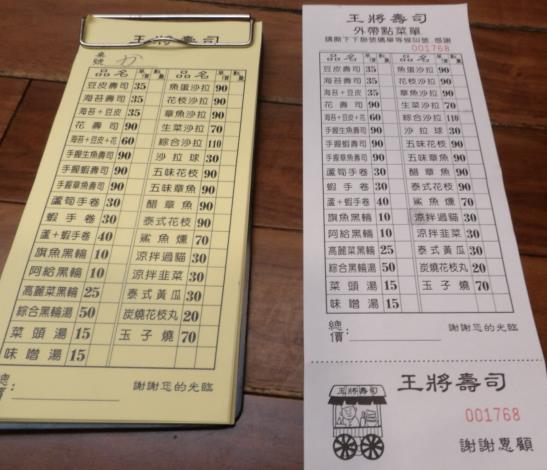 王將壽司
桌號
品名 單價 數量 品名 單價 數量
豆皮壽司 35 魚蛋沙拉 90
海苔壽司 35 花枝沙拉 90
海苔+豆皮 35 章魚沙拉 90
花壽司 90 生菜沙拉 70
海苔+豆皮+花 60 綜合沙拉 110
手握生魚壽司 90 沙拉球 30
手握蝦壽司 90 五味花枝 90
手握章魚壽司 90 五味章魚 90
蘆筍手卷 30 醋章魚 90
蝦手卷 30 泰式花枝 90
蘆+蝦手卷 40 鯊魚燻 70
旗魚黑輪 10 涼拌過貓 30
阿給黑輪 10 涼拌韭菜 30
高麗菜黑輪 25 泰式黃瓜 30
綜合黑輪湯 50 炭燒花枝丸 20
菜頭湯 15 玉子燒 70
味噌湯 15
總價: 謝謝您的光臨
王將壽司
外帶點菜單
001768
品名 單價 數量 品名 單價 數量
豆皮壽司 35 魚蛋沙拉 90
海苔壽司 35 花枝沙拉 90
海苔+豆皮 35 章魚沙拉 90
花壽司 90 生菜沙拉 70
海苔+豆皮+花 60 綜合沙拉 110
手握生魚壽司 90 沙拉球 30
手握蝦壽司 90 五味花枝 90
手握章魚壽司 90 五味章魚 90
蘆筍手卷 30 醋章魚 90
蝦手卷 30 泰式花枝 90
蘆+蝦手卷 40 鯊魚燻 70
旗魚黑輪 10 涼拌過貓 30
阿給黑輪 10 涼拌韭菜 30
高麗菜黑輪 25 泰式黃瓜 30
綜合黑輪湯 50 炭燒花枝丸 20
菜頭湯 15 玉子燒 70
味噌湯 15
總價: 謝謝您的光臨
王將壽司
王將壽司
001768
謝謝惠顧